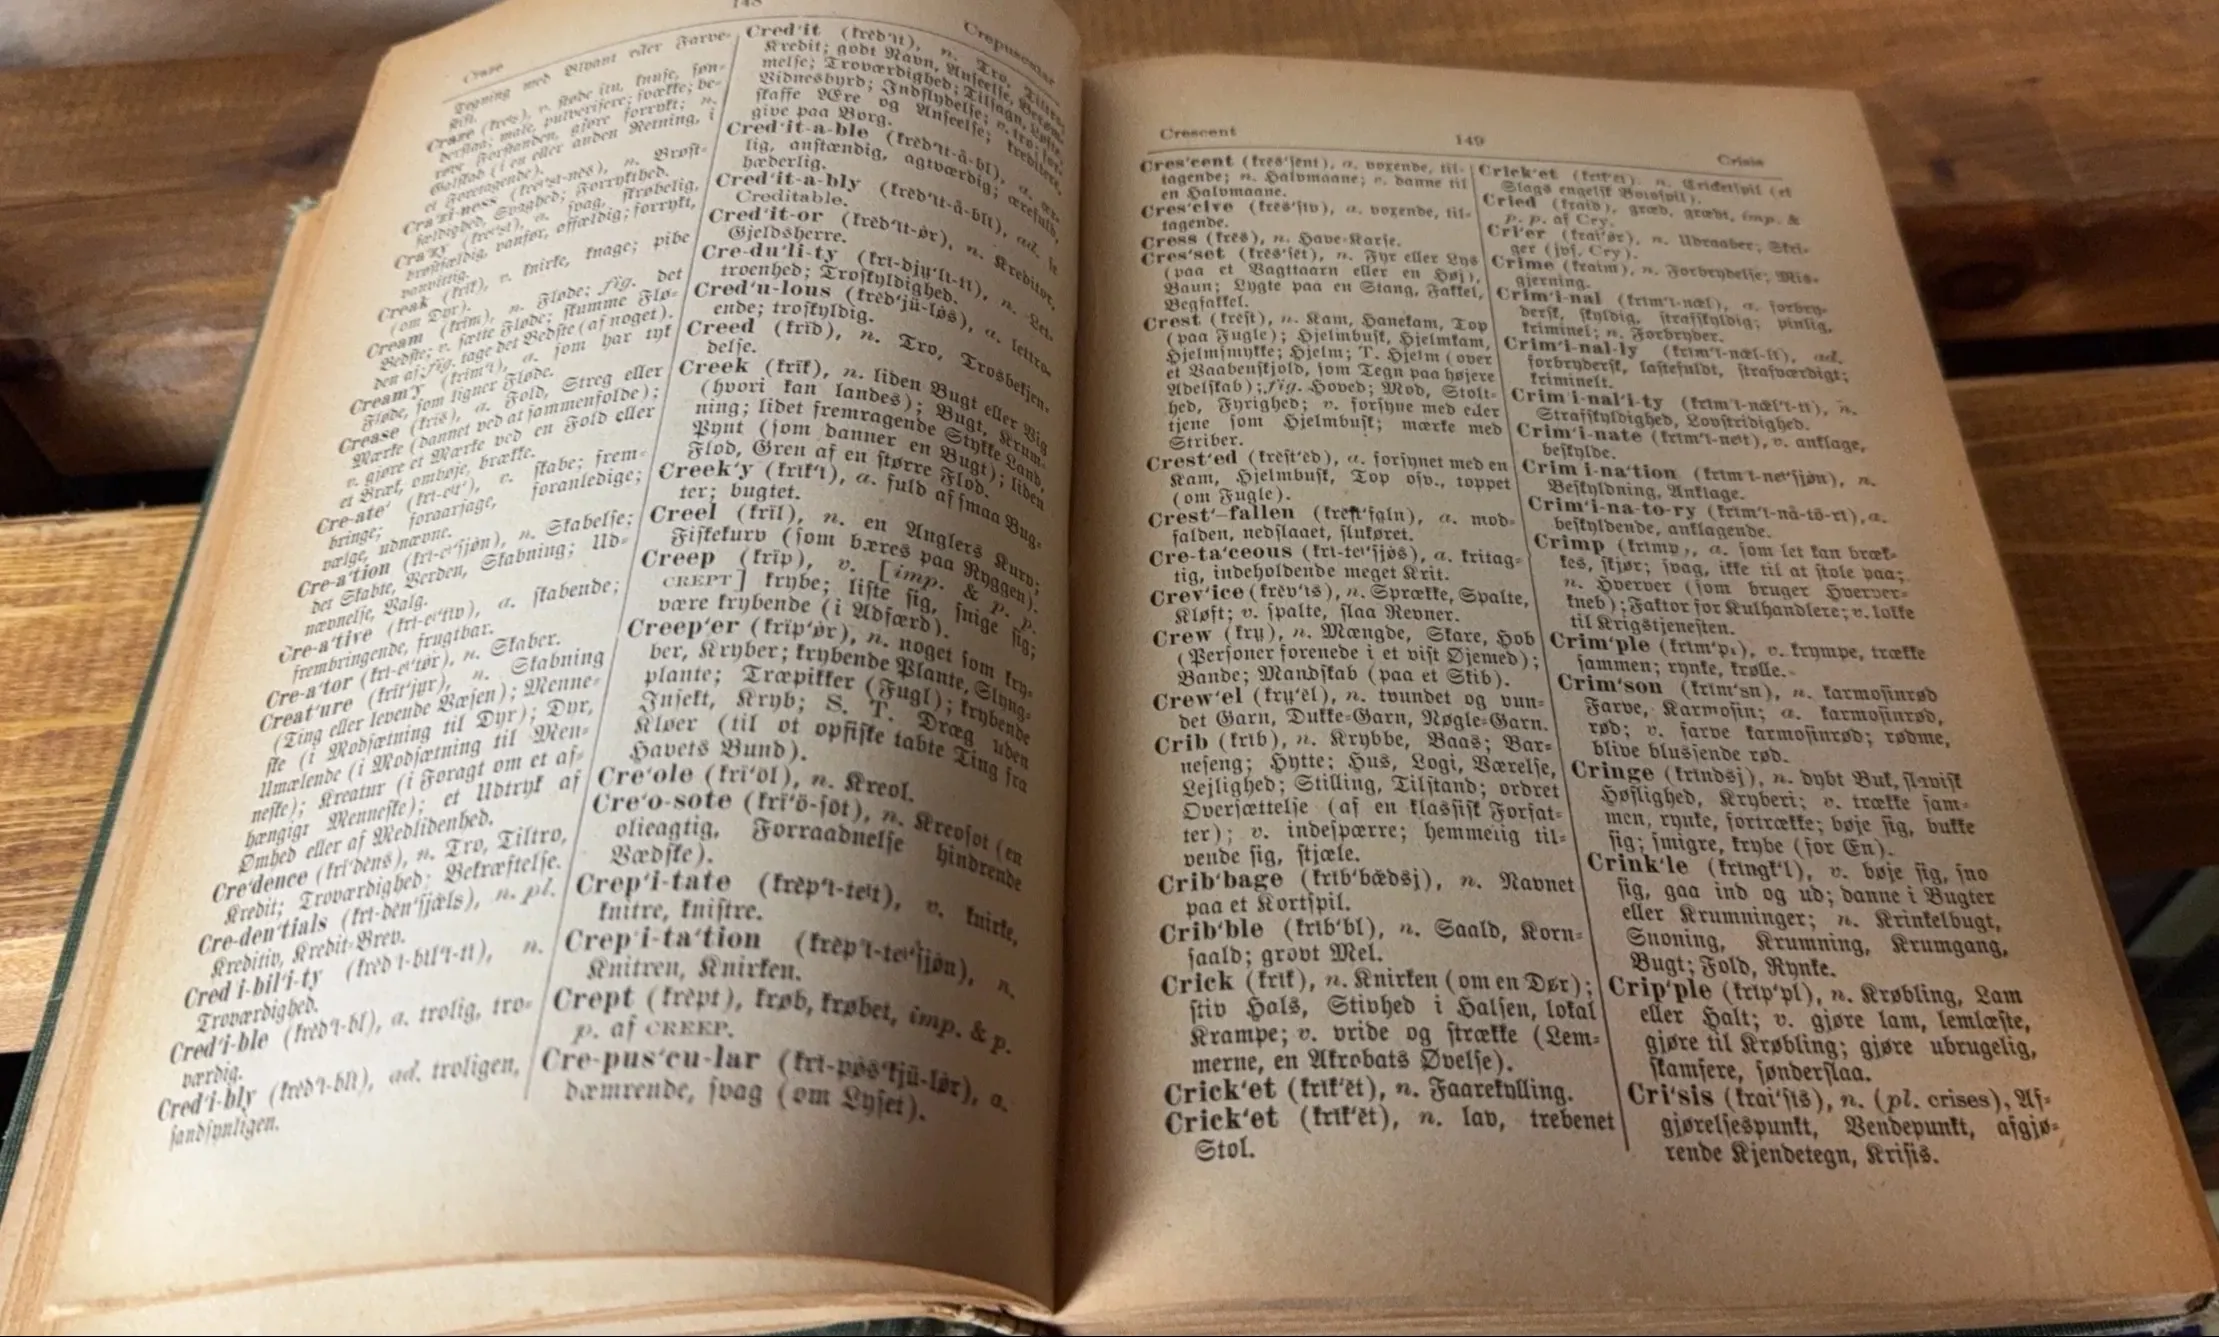 148
Craze
Crepuscular
Tegning med Blyant eller Farve-
stift.
Craze (kreˈs), v. støde itu, knuse, søn-
derslaa; male, pulverisere; svække; be-
røve Forstanden, gjøre forrykt; n.
Galskab (i en eller anden Retning, i
et Foretagende).
Craˈzi-ness (kreˈsi-nes), n. Brøst-
fældighed, Svaghed; Forrykthed.
Craˈzy (kreˈsi), a. svag, skrøbelig,
brøstfældig, vanfør, affældig; forrykt,
vanvittig.
Creak (krīk), v. knirke, knage; pibe
(om Dyr).
Cream (krīm), n. Fløde; fig. det
Bedste; v. sætte Fløde; skumme Flø-
den af; fig. tage det Bedste (af noget).
Creamˈy (krīmˈı), a. som har tykt
Fløde, som ligner Fløde.
Crease (krīs), a. Fold, Streg eller
Mærke (dannet ved at sammenfolde);
v. gjøre et Mærke ved en Fold eller
et Bræk, ombøje, brække.
Cre-ateˈ (krı-eˈt), v. skabe; frem-
bringe; foraarsage, foranledige;
vælge, udnævne.
Cre-aˈtion (krı-eˈsjøn), n. Skabelse;
det Skabte, Verden, Skabning; Ud-
nævnelse, Valg.
Cre-aˈtive (krı-eˈtıv), a. skabende;
frembringende, frugtbar.
Cre-aˈtor (krı-eˈtør), n. Skaber.
Creatˈure (krītˈjur), n. Skabning
(Ting eller levende Væsen); Menne-
ske (i Modsætning til Dyr); Dyr,
Umælende (i Modsætning til Men-
neske); Kreatur (i Foragt om et af-
hængigt Menneske); et Udtryk af
Ømhed eller af Medlidenhed.
Creˈdence (krīˈdens), n. Tro, Tiltro,
Kredit; Troværdighed; Bekræftelse.
Cre-denˈtials (krı-denˈsjæls), n. pl.
Kreditiv, Kredit-Brev.
Cred i-bilˈi-ty (kredˈı-bılˈı-tı), n.
Troværdighed.
Credˈi-ble (kredˈı-bl), a. trolig, tro-
værdig.
Credˈi-bly (kredˈı-blı), ad. troligen,
sandsynligen.
Credˈit (krèdˈıt), n. Tro, Tiltro;
Kredit; godt Navn, Anseelse, Berøm-
melse; Troværdighed; Tilsagn, Løfte;
Vidnesbyrd; Indflydelse; v. tro;
skaffe Ære og Anseelse; kreditere,
give paa Borg.
Credˈit-a-ble (krèdˈıt-å-bl), a. ær-
lig, anstændig, agtværdig; ærefuld,
hæderlig.
Credˈit-a-bly (krèdˈıt-å-blı), ad. se
Creditable.
Credˈit-or (krèdˈıt-ør), n. Kreditor,
Gjeldsherre.
Cre-duˈli-ty (krı-djuˈlı-tı), n. Let-
troenhed; Troskyldighed.
Credˈu-lous (krèdˈjŭ-løs), a. lettro-
ende; troskyldig.
Creed (krīd), n. Tro, Trosbekjen-
delse.
Creek (krīk), n. liden Bugt eller Vig
(hvori kan landes); Bugt, Krum-
ning; lidet fremragende Stykke Land,
Pynt (som danner en Bugt); liden
Flod, Gren af en større Flod.
Creekˈy (krīkˈı), a. fuld af smaa Bug-
ter; bugtet.
Creel (krīl), n. en Anglers Kurv;
Fiskekurv (som bæres paa Ryggen).
Creep (krīp), v. [imp. & p. p.
CREPT] krybe; liste sig, snige sig;
være krybende (i Adfærd).
Creepˈer (krīpˈør), n. noget som kry-
ber, Kryber; krybende Plante, Slyng-
plante; Træpikker (Fugl); krybende
Insekt, Kryb; S. T. Dræg uden
Kløer (til ot opfiske tabte Ting fra
Havets Bund).
Creˈole (krīˈol), n. Kreol.
Creˈo-sote (krīˈŏ-sot), n. Kreosot (en
olieagtig, Forraadnelse hindrende
Vædske).
Crepˈi-tate (krèpˈı-teıt), v. knirke,
knitre, knistre.
Crepˈi-taˈtion (krèpˈı-teıˈsjøn), n.
Knitren, Knirken.
Crept (krèpt), krøb, krøbet, imp. & p.
p. af CREEP.
Cre-pusˈcu-lar (krı-pøsˈkjŭ-lør), a.
dæmrende, svag (om Lyset).
Crescent
149
Crisis
Cresˈcent (kresˈsent), a. voxende, til-
tagende; n. Halvmaane; v. danne til
en Halvmaane.
Cresˈcive (kresˈsıv), a. voxende, til-
tagende.
Cress (kres), n. Have-Karse.
Cresˈset (kresˈset), n. Fyr eller Lys
(paa et Vagttaarn eller en Høj),
Baun; Lygte paa en Stang, Fakkel,
Begfakkel.
Crest (krest), n. Kam, Hanekam, Top
(paa Fugle); Hjelmbusk, Hjelmkam,
Hjelmsmykke; Hjelm; T. Hjelm (over
et Vaabenskjold, som Tegn paa højere
Adelskab); fig. Hoved; Mod, Stolt-
hed, Fyrighed; v. forsyne med eller
tjene som Hjelmbusk; mærke med
Striber.
Crestˈed (krèstˈèd), a. forsynet med en
Kam, Hjelmbusk, Top osv., toppet
(om Fugle).
Crestˈ-fallen (krèstˈfaln), a. mod-
falden, nedslaaet, slukøret.
Cre-taˈceous (krı-teıˈsjøs), a. kritag-
tig, indeholdende meget Krit.
Crevˈice (krèvˈıs), n. Sprække, Spalte,
Kløft; v. spalte, slaa Revner.
Crew (kru), n. Mængde, Skare, Hob
(Personer forenede i et vist Øjemed);
Bande; Mandskab (paa et Skib).
Crewˈel (kruˈèl), n. tvundet og vun-
det Garn, Dukke-Garn, Nøgle-Garn.
Crib (krıb), n. Krybbe, Baas; Bar-
neseng; Hytte; Hus, Logi, Værelse,
Lejlighed; Stilling, Tilstand; ordret
Oversættelse (af en klassisk Forfat-
ter); v. indespærre; hemmelig til-
vende sig, stjæle.
Cribˈbage (krıbˈbædsj), n. Navnet
paa et Kortspil.
Cribˈble (krıbˈbl), n. Saald, Korn-
saald; grovt Mel.
Crick (krık), n. Knirken (om en Dør);
stiv Hals, Stivhed i Halsen, lokal
Krampe; v. vride og strække (Lem-
merne, en Akrobats Øvelse).
Crickˈet (krıkˈèt), n. Faarekylling.
Crickˈet (krıkˈèt), n. lav, trebenet
Stol.
Crickˈet (krıkˈet), n. Cricketspil (et
Slags engelsk Boldspil).
Cried (kraid), græd, grædt, imp. &
p. p. af Cry.
Criˈer (kraiˈør), n. Udraaber; Skri-
ger (jvf. Cry).
Crime (kraim), n. Forbrydelse; Mis-
gjerning.
Crimˈi-nal (krımˈı-næl), a. forbry-
dersk, skyldig, strafskyldig; pinlig,
kriminel; n. Forbryder.
Crimˈi-nal-ly (krımˈı-næl-lı), ad.
forbrydersk, lastefuldt, strafværdigt;
kriminelt.
Crimˈi-nalˈi-ty (krımˈı-nælˈı-tı), n.
Strafskyldighed, Lovstridighed.
Crimˈi-nate (krımˈı-neıt), v. anklage,
beskylde.
Crim i-naˈtion (krımˈı-neıˈsjøn), n.
Beskyldning, Anklage.
Crimˈi-na-to-ry (krımˈı-nå-tŏ-rı), a.
beskyldende, anklagende.
Crimp (krımp), a. som let kan bræk-
kes, skjør; svag, ikke til at stole paa;
n. Hverver (som bruger Hverver-
kneb); Faktor for Kulhandlere; v. lokke
til Krigstjenesten.
Crimˈple (krımˈpl), v. krympe, trække
sammen; rynke, krølle.
Crimˈson (krımˈsn), n. karmosinrød
Farve, Karmosin; a. karmosinrød,
rød; v. farve karmosinrød; rødme,
blive blussende rød.
Cringe (krındsj), n. dybt Buk, slavisk
Høflighed, Kryberi; v. trække sam-
men, rynke, fortrække; bøje sig, bukke
sig; smigre, krybe (for En).
Crinkˈle (krıngkˈl), v. bøje sig, sno
sig, gaa ind og ud; danne i Bugter
eller Krumninger; n. Krinkelbugt,
Snoning, Krumning, Krumgang,
Bugt; Fold, Rynke.
Cripˈple (krıpˈpl), n. Krøbling, Lam
eller Halt; v. gjøre lam, lemlæste,
gjøre til Krøbling; gjøre ubrugelig,
skamfere, sønderslaa.
Criˈsis (kraiˈsıs), n. (pl. crises), Af-
gjørelsespunkt, Vendepunkt, afgjø-
rende Kjendetegn, Krisis.